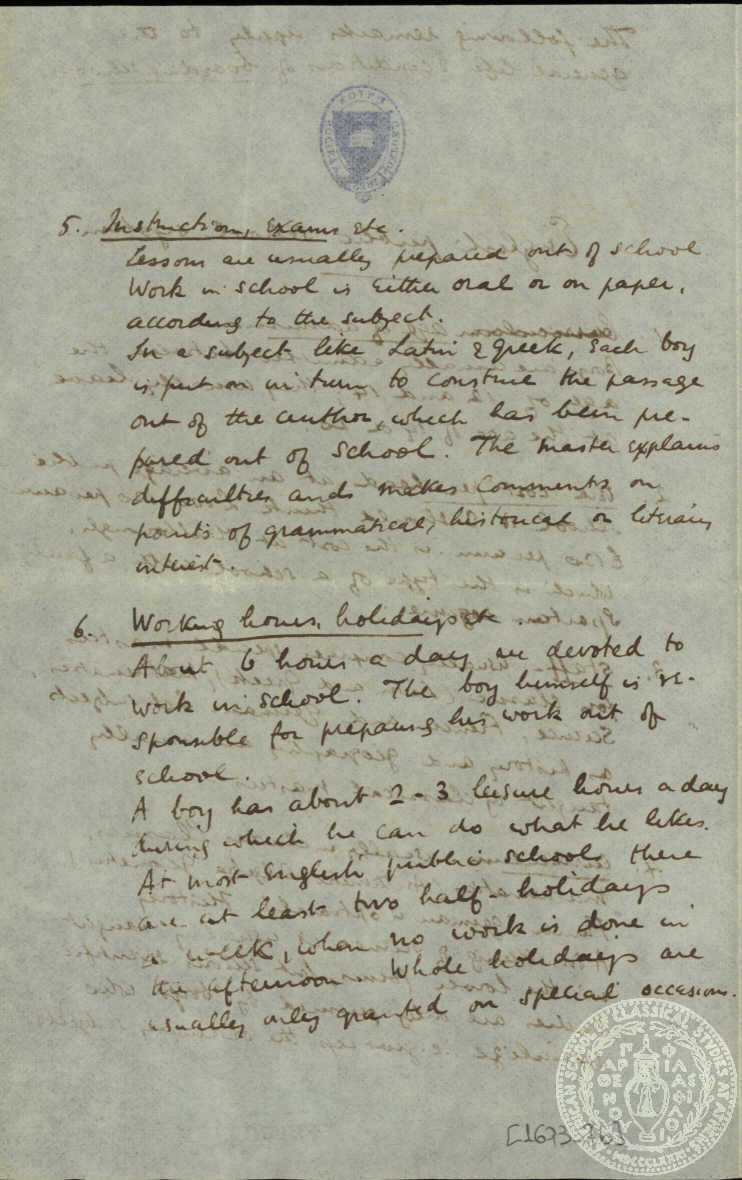 5. Instruction, exams etc.
Lessons are usually prepared out of school
Work in school is either oral or on paper,
according to the subject.
In a subject like Latin & Greek, each boy
is put on in turn to construe the passage
out of the author, which has been pre-
pared out of school. The master explains
difficulties ands makes comments on
points of grammatical, historical or literary
interest.
6. Working hours, holidays etc.
About 6 hours a day are devoted to
work in school. The boy himself is re-
sponsible for preparing his work out of
school.
A boy has about 2-3 leisure hours a day
during which he can do what he likes.
At most English public schools there
are at least two half-holidays
a week, when no work is done in
the afternoon. Whole holidays are
usually only granted on special occasions.
AMERICAN SCHOOL OF CLASSICAL STUDIES AT ATHENS
ΠΑΡΘΕΝΟΥ
ΦΙΛΑΣ ΦΙΛΟΙ
MDCCCLXXXI
[1673-76]